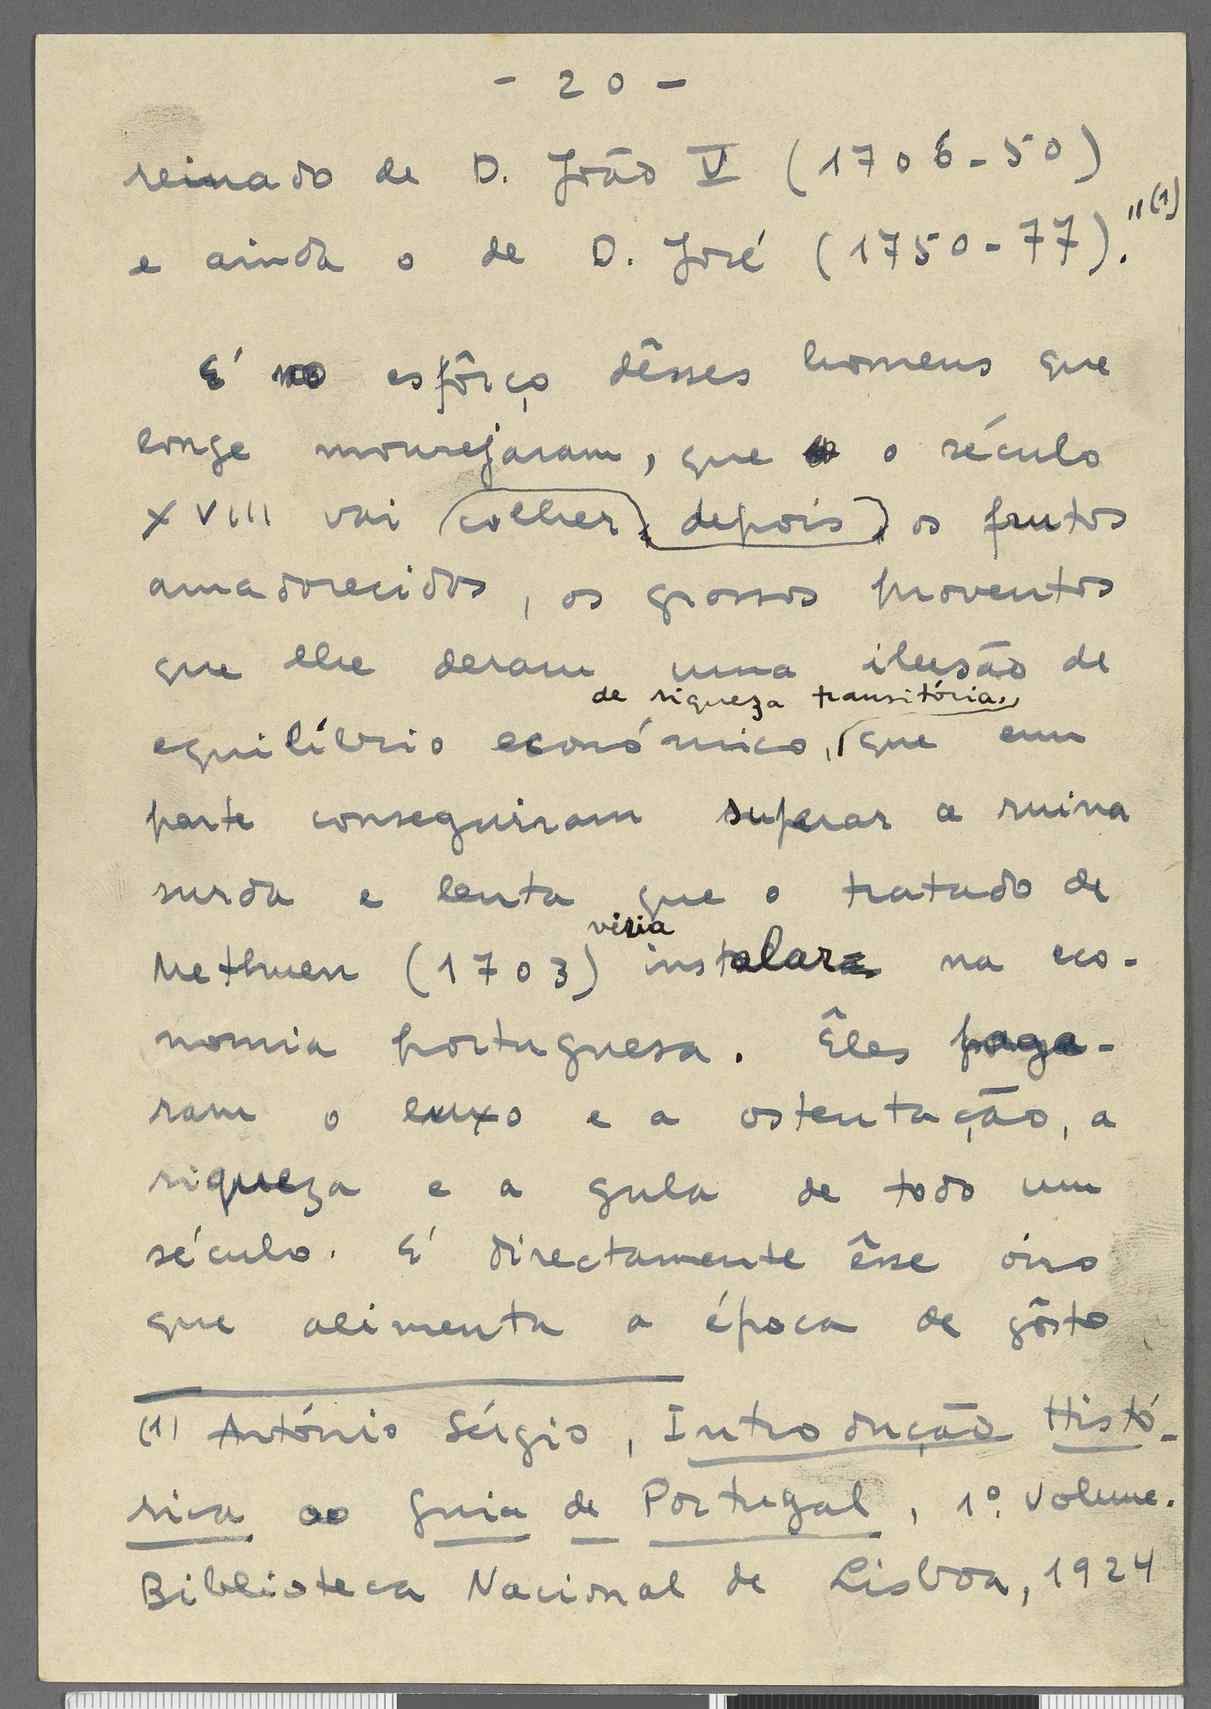 - 20 -
reinado de D. João V (1706-50)
e ainda o de D. José (1750-77)."(1)
E' no esfôrço dêsses homens que
longe mourejaram, que o século
XVIII vai colher depois os frutos
amadorecidos, os grossos proventos
que lhe deram uma ilusão de
de riqueza transitória,
equilíbrio económico, que em
parte conseguiram superar a ruina
surda e lenta que o tratado de
viria
Methuen (1703) instalar na eco-
nomia portuguesa. Êles paga-
ram o luxo e a ostentação, a
riqueza e a gula de todo um
século. E' directamente êsse oiro
que alimenta a época de gôsto
(1) António Sérgio, Introdução Histó-
rica ao Guia de Portugal, 1º. volume.
Biblioteca Nacional de Lisboa, 1924